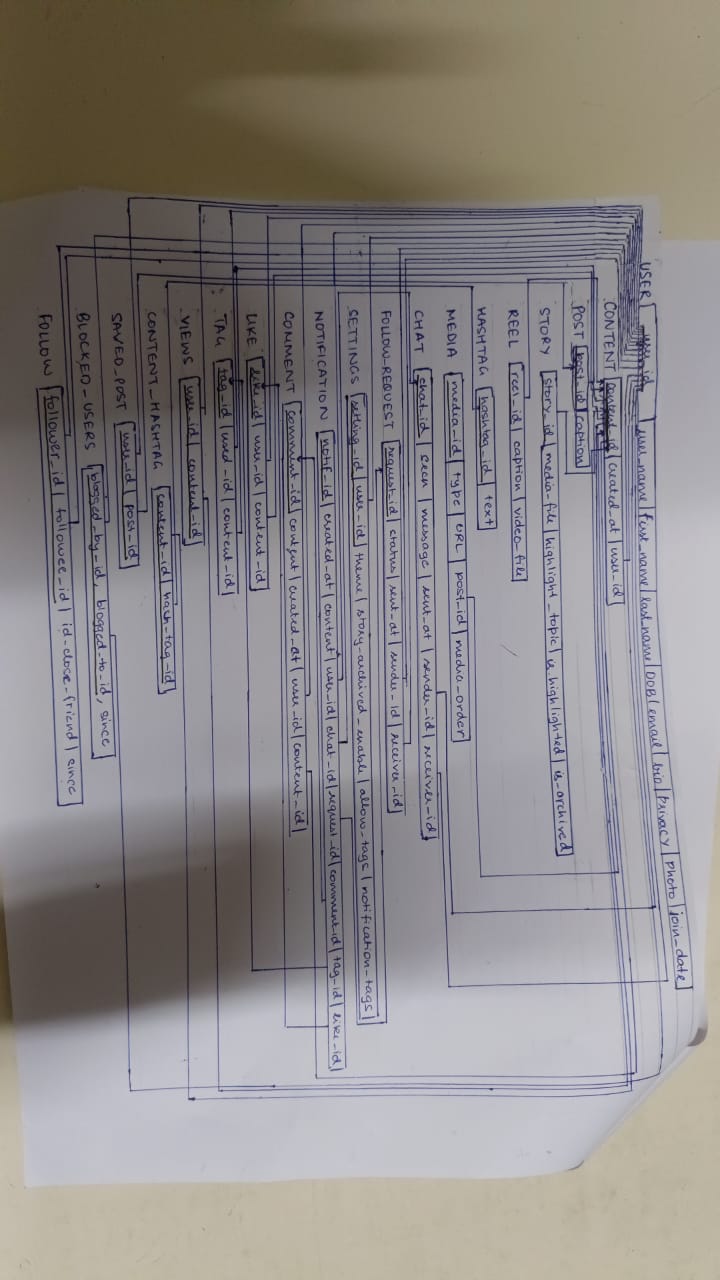 USER user_id | user_name | first_name | last_name | DOB | email | bio | Privacy | photo | join_date
CONTENT content_id | created_at | user_id
POST post_id | caption
STORY story_id | media-file | highlight_topic | is highlighted | is-archived
REEL reel_id | caption | video-file
HASHTAG hashtag_id | text
MEDIA media-id | type | URL | post_id | media-order
CHAT chat_id | seen | message | sent_at | sender-id | receiver-id
FOLLOW_REQUEST request_id | status | sent-at | sender-id | receiver-id
SETTINGS setting-id | user-id | theme | story-archived_enable | allow-tags | notification-tags
NOTIFICATION notif_id | created-at | content | user-id | chat-id | request_id | comment-id | tag-id | like-id
COMMENT comment-id | content | created-at | user-id | content-id
LIKE like_id | user-id | content-id
TAG tag-id | used-id | content-id
VIEWS user-id | content-id
CONTENT_HASHTAG content-id | hash-tag-id
SAVED_POST user-id | post-id
BLOCKED_USERS blogged-by-id, blogged-to-id, since
FOLLOW follower_id | followee_id | id-close-friend | since